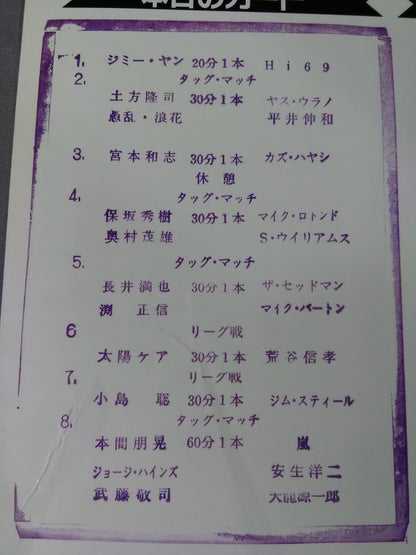 本日のカード
1. ジミー・ヤン 20分1本 Hi69
2. タッグ・マッチ
土方隆司 30分1本 ヤス・ウラノ
愚乱・浪花 平井伸和
3. 宮本和志 30分1本 カズ・ハヤシ
休憩
4. タッグ・マッチ
保坂秀樹 30分1本 マイク・ロトンド
奥村茂雄 S・ウイリアムス
5. タッグ・マッチ
長井満也 30分1本 ザ・セッドマン
渕正信 マイク・バートン
6 リーグ戦
太陽ケア 30分1本 荒谷信孝
7. リーグ戦
小島聡 30分1本 ジム・スティール
8. タッグ・マッチ
本間朋晃 60分1本 嵐
ジョージ・ハインズ 安生洋二
武藤敬司 天龍源一郎